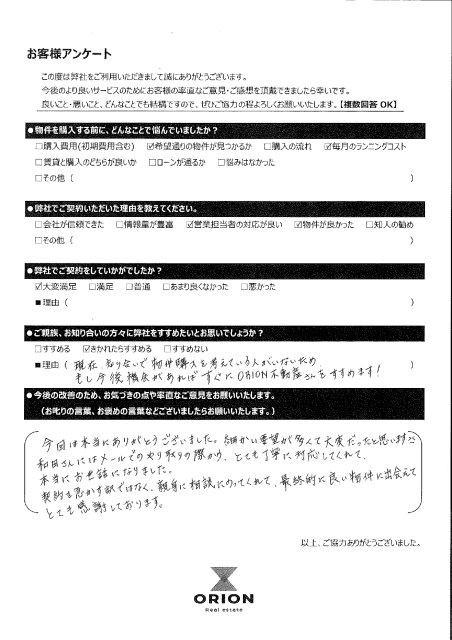 お客様アンケート
この度は弊社をご利用いただきまして誠にありがとうございます。
今後のより良いサービスのためにお客様の率直なご意見・ご感想を頂戴できましたら幸いです。
良いこと・悪いこと、どんなことでも結構ですので、ぜひご協力の程よろしくお願いいたします。【複数回答 OK】
●物件を購入する前に、どんなことで悩んでいましたか?
□購入費用(初期費用含む) ☑希望通りの物件が見つかるか □購入の流れ ☑毎月のランニングコスト
□賃貸と購入のどちらが良いか □ローンが通るか □悩みはなかった
□その他 ( )
●弊社でご契約いただいた理由を教えてください。
□会社が信頼できた □情報量が豊富 ☑営業担当者の対応が良い ☑物件が良かった □知人の勧め
□その他 ( )
●弊社でご契約をしていかがでしたか?
☑大変満足 □満足 □普通 □あまり良くなかった □悪かった
■理由 ( )
●ご親族、お知り合いの方々に弊社をすすめたいとお思いでしょうか?
□すすめる ☑きかれたらすすめる □すすめない
■理由 ( 現在、知り合いで物件購入を考えている人がいないため
もし今後機会があればすぐにORION不動産さんをすすめます! )
●今後の改善のため、お気づきの点や率直なご意見をお願いいたします。
(お叱りの言葉、お褒めの言葉などございましたらお願いいたします。)
今回は本当にありがとうございました。細かい要望が多くて大変だったと思いますが
和田さんにはメールでのやり取りの際から、とても丁寧に対応してくれて、
本当にお世話になりました。
契約を急かす訳ではなく、親身に相談にのってくれて、最終的に良い物件に出会えて
とても感謝しております。
以上、ご協力ありがとうございました。
ORION
Real estate